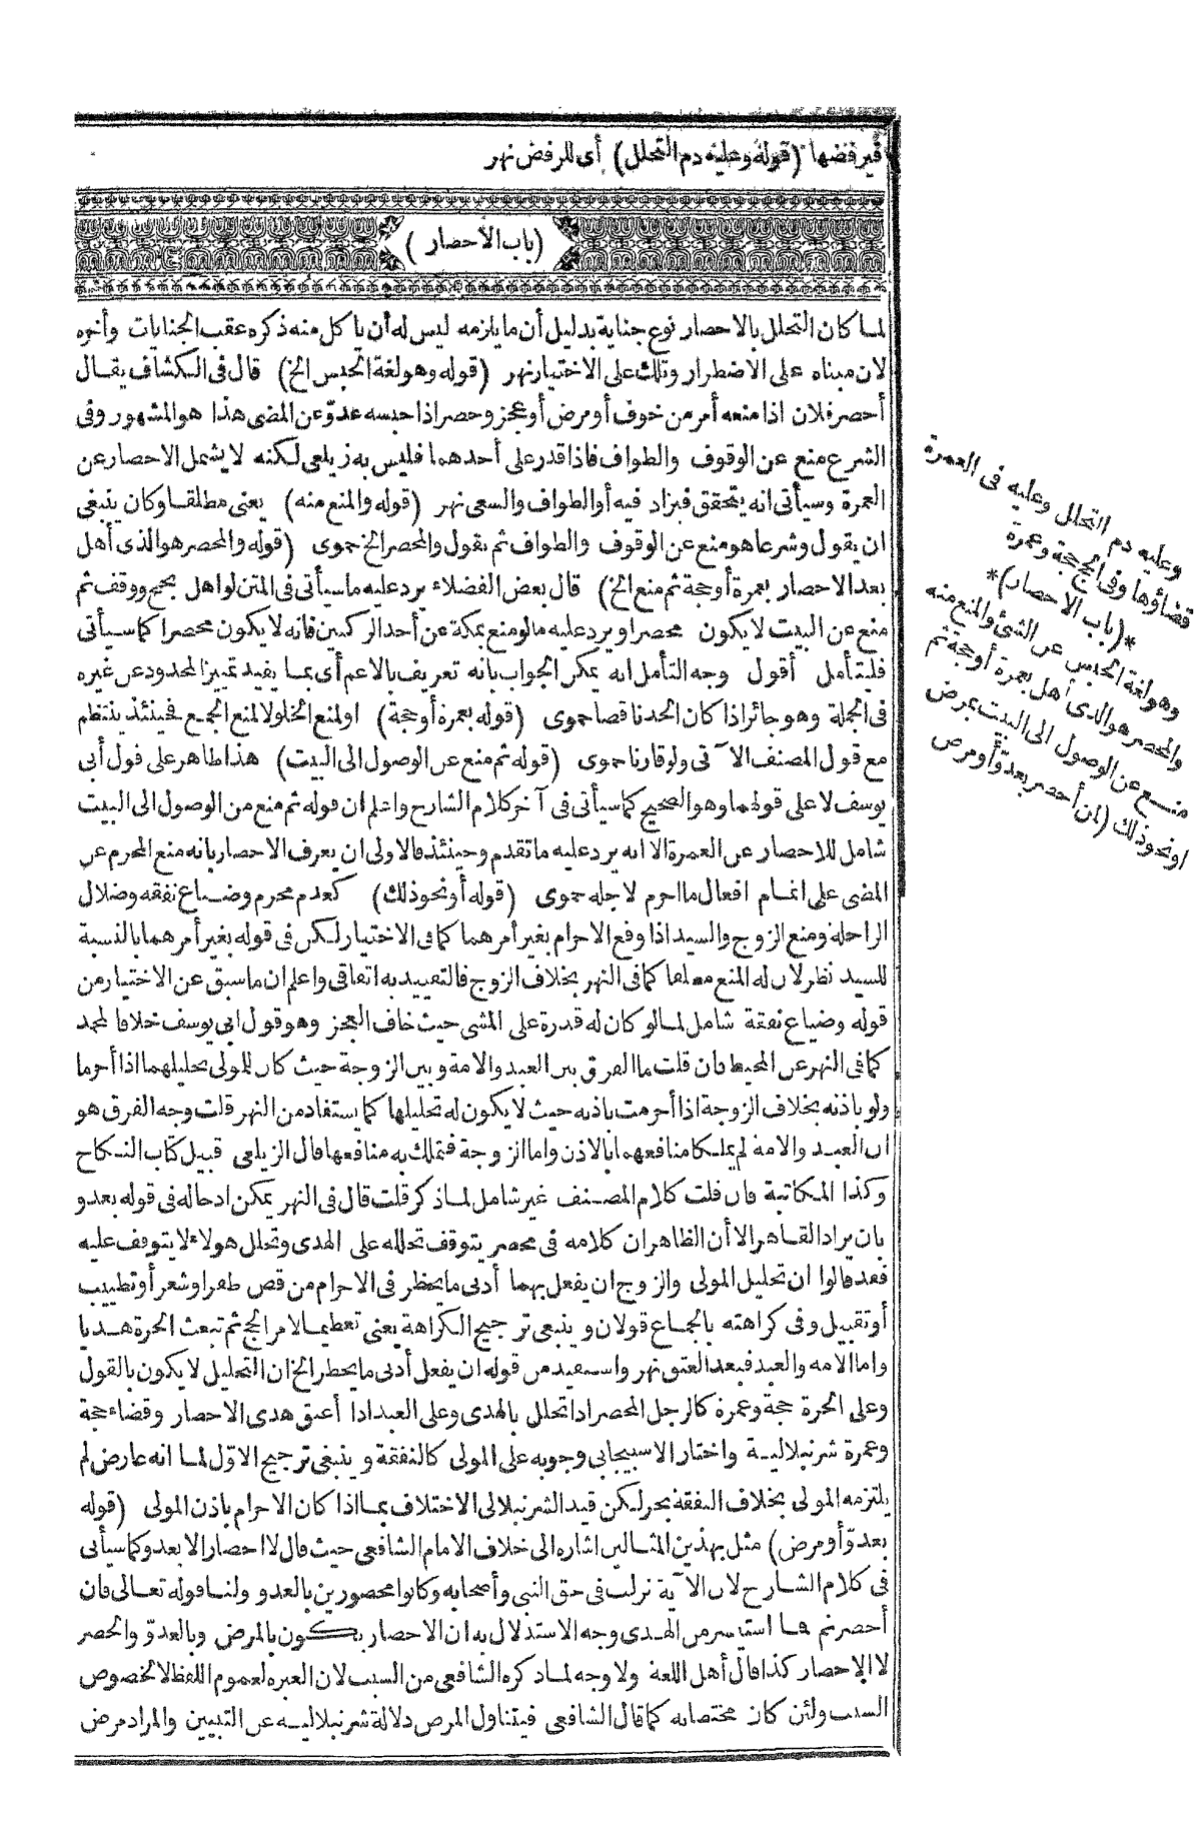 فيرفضها (قوله وعليه دم التحلل) أى للرفض نهر
(باب الاحصار)
لما كان التحلل بالاحصار نوع جناية بدليل أن ما يلزمه ليس له أن يأكل منه ذكره عقب الجنايات وأخره
لان مبناه على الاضطرار وتلك على الاختيار نهر (قوله وهو لغة الحبس الخ) قال فى الكشاف يقال
أحصر فلان اذا منعه أمر من خوف أو مرض أو عجز وحصر اذا حبسه عدوّ عن المضى هذا هو المشهور وفى
الشرع منع عن الوقوف والطواف فاذا قدر على أحدهما فليس به زيلعى لكنه لا يشمل الاحصار عن
العمرة وسيأتى انه يتحقق فيزاد فيه أو الطواف والسعى نهر (قوله والمنع منه) يعنى مطلقا وكان ينبغى
ان يقول وشرعا هو منع عن الوقوف والطواف ثم يقول والمحصر الخ حموى (قوله والمحصر هو الذى أهل
بعد الاحصار بعمرة أو حجة ثم منع الخ) قال بعض الفضلاء يرد عليه ما سيأتى فى المتن لو اهل بحج ووقف ثم
منع عن البيت لا يكون محصرا ويرد عليه ما لو منع بمكة عن أحد الركنين فانه لا يكون محصرا كما سيأتى
فليتأمل أقول وجه التأمل انه يمكن الجواب بانه تعريف بالاعم أى بما يفيد تمييز المحدود عن غيره
فى الجملة وهو جائز اذا كان الحد ناقصا حموى (قوله بعمرة أو حجة) او لمنع الخلو لا لمنع الجمع فحينئذ ينتظم
مع قول المصنف الآتى ولو قارنا حموى (قوله ثم منع عن الوصول الى البيت) هذا ظاهر على قول أبى
يوسف لا على قولهما وهو الصحيح كما سيأتى فى آخر كلام الشارح واعلم ان قوله ثم منع من الوصول الى البيت
شامل للاحصار عن العمرة الا انه يرد عليه ما تقدم وحينئذ فالاولى ان يعرف الاحصار بانه منع المحرم عن
المضى على اتمام افعال ما احرم لاجله حموى (قوله أو نحو ذلك) كعدم محرم وضياع نفقه وضلال
الراحلة ومنع الزوج والسيد اذا وقع الاحرام بغير أمرهما كما فى الاختيار لكن فى قوله بغير أمرهما بالنسبة
للسيد نظر لان له المنع مطلقا كما فى النهر بخلاف الزوج فالتقييد به اتفاقى واعلم ان ما سبق عن الاختيار من
قوله وضياع نفقة شامل لما لو كان له قدرة على المشى حيث خاف العجز وهو قول ابى يوسف خلافا لمحمد
كما فى النهر عن المحيط فان قلت ما الفرق بين العبد والامة وبين الزوجة حيث كان للمولى تحليلهما اذا أحرما
ولو باذنه بخلاف الزوجة اذا أحرمت باذنه حيث لا يكون له تحليلها كما يستفاد من النهر قلت وجه الفرق هو
ان العبد والامة لم يملكا منافعهما بالاذن واما الزوجة فتملك به منافعها قال الزيلعى قبيل كتاب النكاح
وكذا المكاتبة فان قلت كلام المصنف غير شامل لما ذكر قلت قال فى النهر يمكن ادخاله فى قوله بعدو
بان يراد القاهر الا أن الظاهر ان كلامه فى محصر يتوقف تحلله على الهدى وتحلل هولاء لا يتوقف عليه
فقد قالوا ان تحليل المولى والزوج ان يفعل بهما أدنى ما يحظر فى الاحرام من قص ظفر او شعر أو تطييب
أو تقبيل وفى كراهته بالجماع قولان وينبغى ترجيح الكراهة يعنى تعظيما لامر الحج ثم تبعث الحرة هديا
واما الامة والعبد فبعد العتق نهر واستفيد من قوله ان يفعل أدنى ما يحظر الخ ان التحليل لا يكون بالقول
وعلى الحرة حجة وعمرة كالرجل المحصر اذا تحلل بالهدى وعلى العبد اذا أعتق هدى الاحصار وقضاء حجة
وعمرة شرنبلالية واختار الاسبيجابى وجوبه على المولى كالنفقة وينبغى ترجيح الاوّل لما انه عارض لم
يلتزمه المولى بخلاف النفقة بحر لكن قيد الشرنبلالى الاختلاف بما اذا كان الاحرام باذن المولى (قوله
بعدوّ أو مرض) مثل بهذين المثالين اشارة الى خلاف الامام الشافعى حيث قال لا احصار الا بعدو كما سيأتى
فى كلام الشارح لان الآية نزلت فى حق النبى وأصحابه وكانوا محصورين بالعدو ولنا قوله تعالى فان
أحصرتم فما استيسر من الهدى وجه الاستدلال به ان الاحصار يكون بالمرض وبالعدوّ والحصر
لا الاحصار كذا قال أهل اللغة ولا وجه لما ذكره الشافعى من السبب لان العبرة لعموم اللفظ لا لخصوص
السبب ولئن كان مختصا به كما قال الشافعى فيتناول المرض دلالة شرنبلالية عن التبيين والمراد مرض
وعليه دم التحلل وعليه فى العمرة
قضاؤها وفى الحج حجة وعمرة
*(باب الاحصار)*
وهو لغة الحبس عن الشئ والمنع منه
والمحصر هو الذى أهل بعمرة أو حجة ثم
منع عن الوصول الى البيت بمرض
او نحو ذلك (لمن أحصر بعدوّ أو مرض